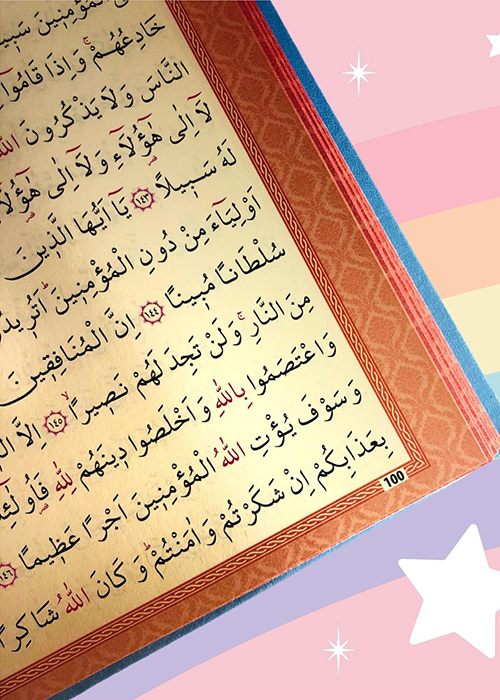 الْمُؤْمِنِينَ سَبِي
خَادِعُهُمْ ۚ وَاِذَا قَامُٓوا
النَّاسَ وَلَا يَذْكُرُونَ اللّٰ
لَٓا اِلٰى هٰٓؤُ۬لَٓاءِ وَلَٓا اِلٰى هٰٓؤُ۬لَٓا
لَهُ سَبِيلًا ﴿١٤٣﴾ يَٓا اَيُّهَا الَّذِينَ
اَوْلِيَٓاءَ مِنْ دُونِ الْمُؤْمِنِينَ ۜ اَتُرِيدُ
سُلْطَانًا مُبِينًا ﴿١٤٤﴾ اِنَّ الْمُنَافِقِينَ
مِنَ النَّارِ ۚ وَلَنْ تَجِدَ لَهُمْ نَصِيرًا ۙ ﴿١٤٥﴾ اِلَّا الَّ
وَاعْتَصَمُوا بِاللّٰهِ وَاَخْلَصُوا دِينَهُمْ لِلّٰهِ فَاُو۬لٰٓئِ
وَسَوْفَ يُؤْتِ اللّٰهُ الْمُؤْمِنِينَ اَجْرًا عَظِيمًا ﴿١٤٦﴾
بِعَذَابِكُمْ اِنْ شَكَرْتُمْ وَاٰمَنْتُمْ ۜ وَكَانَ اللّٰهُ شَاكِرًا
100